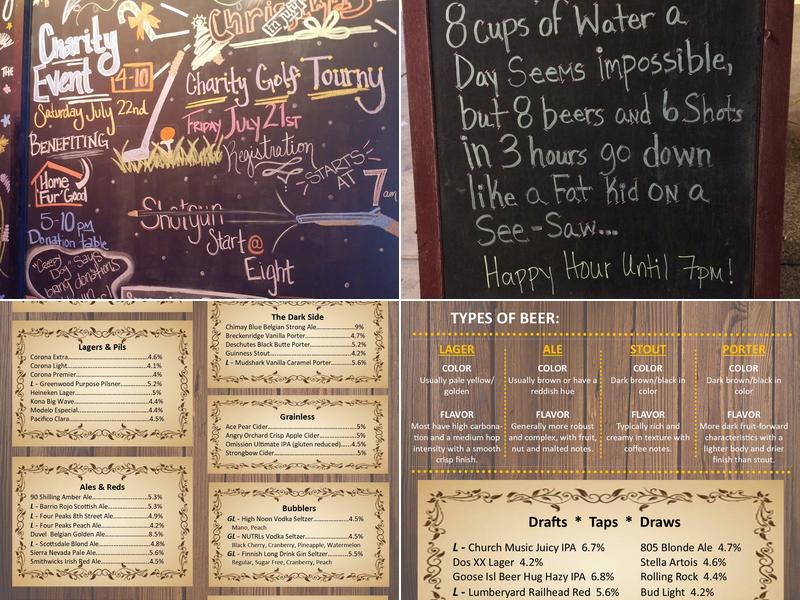 THE
Charity
Event
4-10
Saturday July 22nd
BENEFITING
Home
Fur' Good
5-10 pm
Donation table
"Creepy
Dog" Says
bring donations
Christmas
in July
Charity Golf Tourny
FRIDAY JULY 21ST
Registration
STARTS
AT
7am
Shotgun
Start @
Eight
8 cups of Water a
Day Seems impossible,
but 8 beers and 6 Shots
in 3 hours go down
like a Fat Kid on a
See-Saw...
Happy Hour Until 7pm!
Lagers & Pils
Corona Extra 4.6%
Corona Light 4.1%
Corona Premier 4%
L - Greenwood Purpose Pilsner 5.2%
Heineken Lager 5%
Kona Big Wave 4.4%
Modelo Especial 4.4%
Pacifico Clara 4.5%
Ales & Reds
90 Shilling Amber Ale 5.3%
L - Barrio Rojo Scottish Ale 5.3%
L - Four Peaks 8th Street Ale 4.9%
L - Four Peaks Peach Ale 4.2%
Duvel Belgian Golden Ale 8.5%
L - Scottsdale Blond Ale 4.8%
Sierra Nevada Pale Ale 5.6%
Smithwicks Irish Red Ale 4.5%
The Dark Side
Chimay Blue Belgian Strong Ale 9%
Breckenridge Vanilla Porter 4.7%
Deschutes Black Butte Porter 5.2%
Guinness Stout 4.2%
L - Mudshark Vanilla Caramel Porter 5.6%
Grainless
Ace Pear Cider 5%
Angry Orchard Crisp Apple Cider 5%
Omission Ultimate IPA (gluten reduced) 4.5%
Strongbow Cider 5%
Bubblers
GL - High Noon Vodka Seltzer 4.5%
Mano, Peach
GL - NUTRLs Vodka Seltzer 4.5%
Black Cherry, Cranberry, Pineapple, Watermelon
GL - Finnish Long Drink Gin Seltzer 5.5%
Regular, Sugar Free, Cranberry, Peach
TYPES OF BEER:
LAGER
COLOR
Usually pale yellow/
golden
FLAVOR
Most have high carbona-
tion and a medium hop
intensity with a smooth
crisp finish.
ALE
COLOR
Usually brown or have a
reddish hue
FLAVOR
Generally more robust
and complex, with fruit,
nut and malted notes.
STOUT
COLOR
Dark brown/black in
color
FLAVOR
Typically rich and
creamy in texture with
coffee notes.
PORTER
COLOR
Dark brown/black in
color
FLAVOR
More dark fruit-forward
characteristics with a
lighter body and drier
finish than stout.
Drafts * Taps * Draws
L - Church Music Juicy IPA 6.7%
Dos XX Lager 4.2%
Goose Isl Beer Hug Hazy IPA 6.8%
L - Lumberyard Railhead Red 5.6%
805 Blonde Ale 4.7%
Stella Artois 4.6%
Rolling Rock 4.4%
Bud Light 4.2%